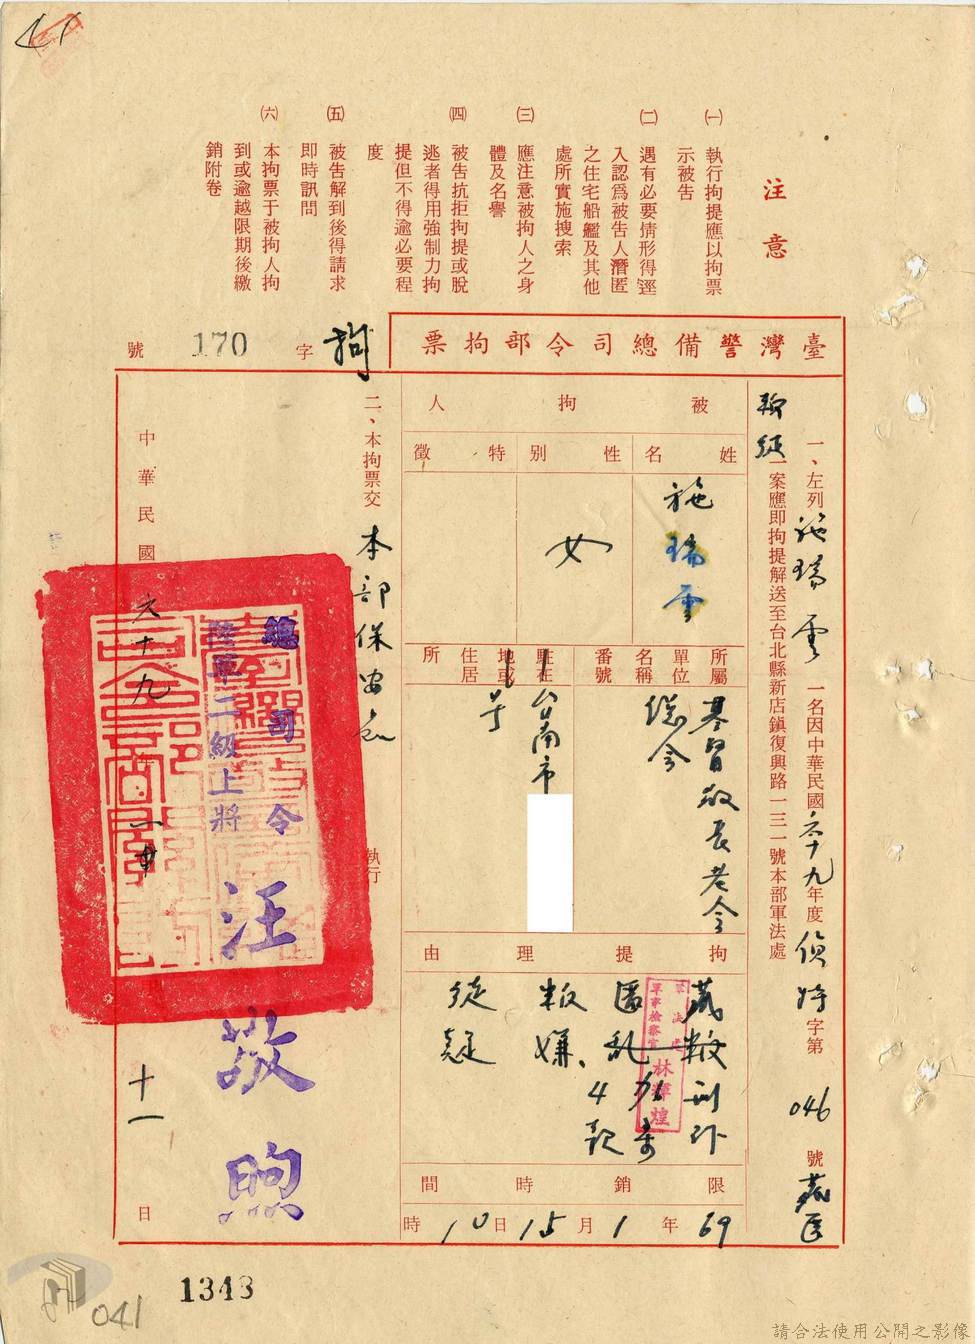 41
注意
㈠ 執行拘提應以拘票
示被告
㈡ 遇有必要情形得逕
入認爲被告人潛匿
之住宅船艦及其他
處所實施搜索
㈢ 應注意被拘人之身
體及名譽
㈣ 被告抗拒拘提或脫
逃者得用強制力拘
提但不得逾必要程
度
㈤ 被告解到後得請求
即時訊問
㈥ 本拘票于被拘人拘
到或逾越限期後繳
銷附卷
臺灣警備總司令部拘票
拘字 170 號
一、左列施瑞雲一名因中華民國六十九年度偵特字第046號藏匿
叛徒一案應即拘提解送至台北縣新店鎮復興路一三一號本部軍法處
被拘人
姓名
性別
特徵
施瑞雲
女
所屬單位名稱番號
駐在地或住居所
基督教長老會
總會
台南市
號
拘提理由
叛
匿叛
徒嫌
疑
4款
軍法處
軍事檢察官 林輝煌
限銷時間
69年1月15日10時
二、本拘票交本部保安處執行
總司令
陸軍二級上將
汪敬煦
中華民國六十九年一月十一日
1343
041
請合法使用公開之影像